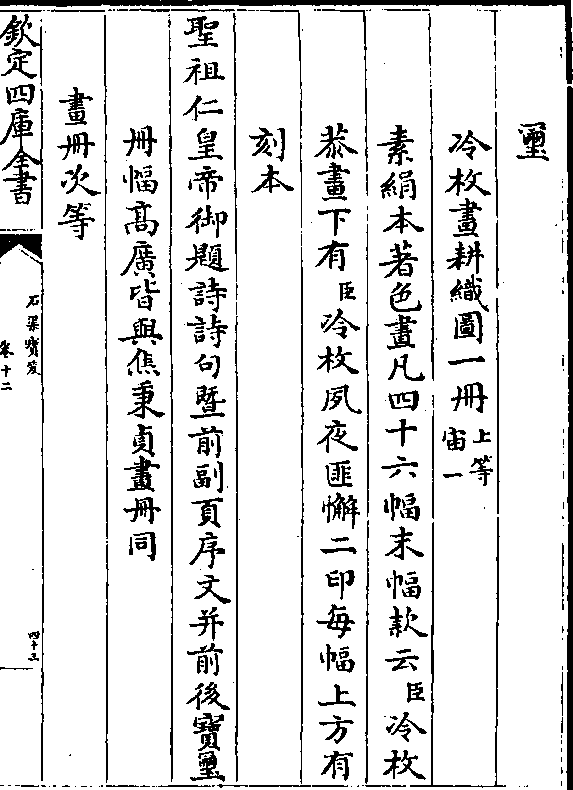 璽
冷枚畫耕織圖一冊上等宙一
素絹本著色畫凡四十六幅末幅款云臣冷枚
恭畫下有臣冷枚夙夜匪懈二印每幅上方有
刻本
聖祖仁皇帝御題詩詩句暨前副頁序文并前後寶璽
冊幅高廣皆與焦秉貞畫冊同
畫冊次等
欽定四庫全書
石渠寶笈
卷十二
四十三